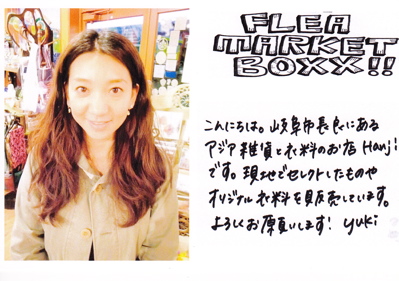 FLEA
MARKET
BOXX!!
こんにちは。岐阜市長良にある
アジア雑貨と衣料のお店 Hanji
です。現地でセレクトしたものや
オリジナル衣料を販売しています。
よろしくお願いします! yuki